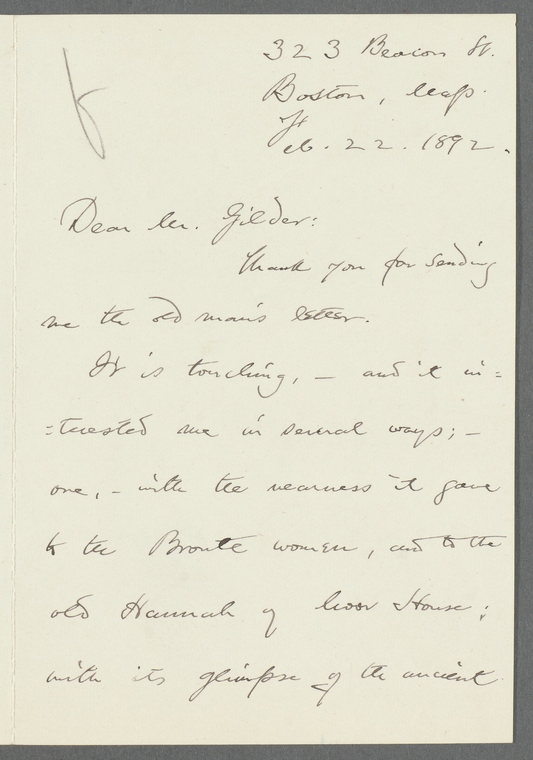 323 Beacon St.
Boston, Mass.
Feb. 22. 1892.
Dear Mr. Gilder:
Thank you for sending
me the old man's letter.
It is touching, – and it in=
=terested me in several ways; –
one, – with the nearness it gave
to the Bronte women, and to the
old Hannah of Moor House;
with its glimpse of the ancient